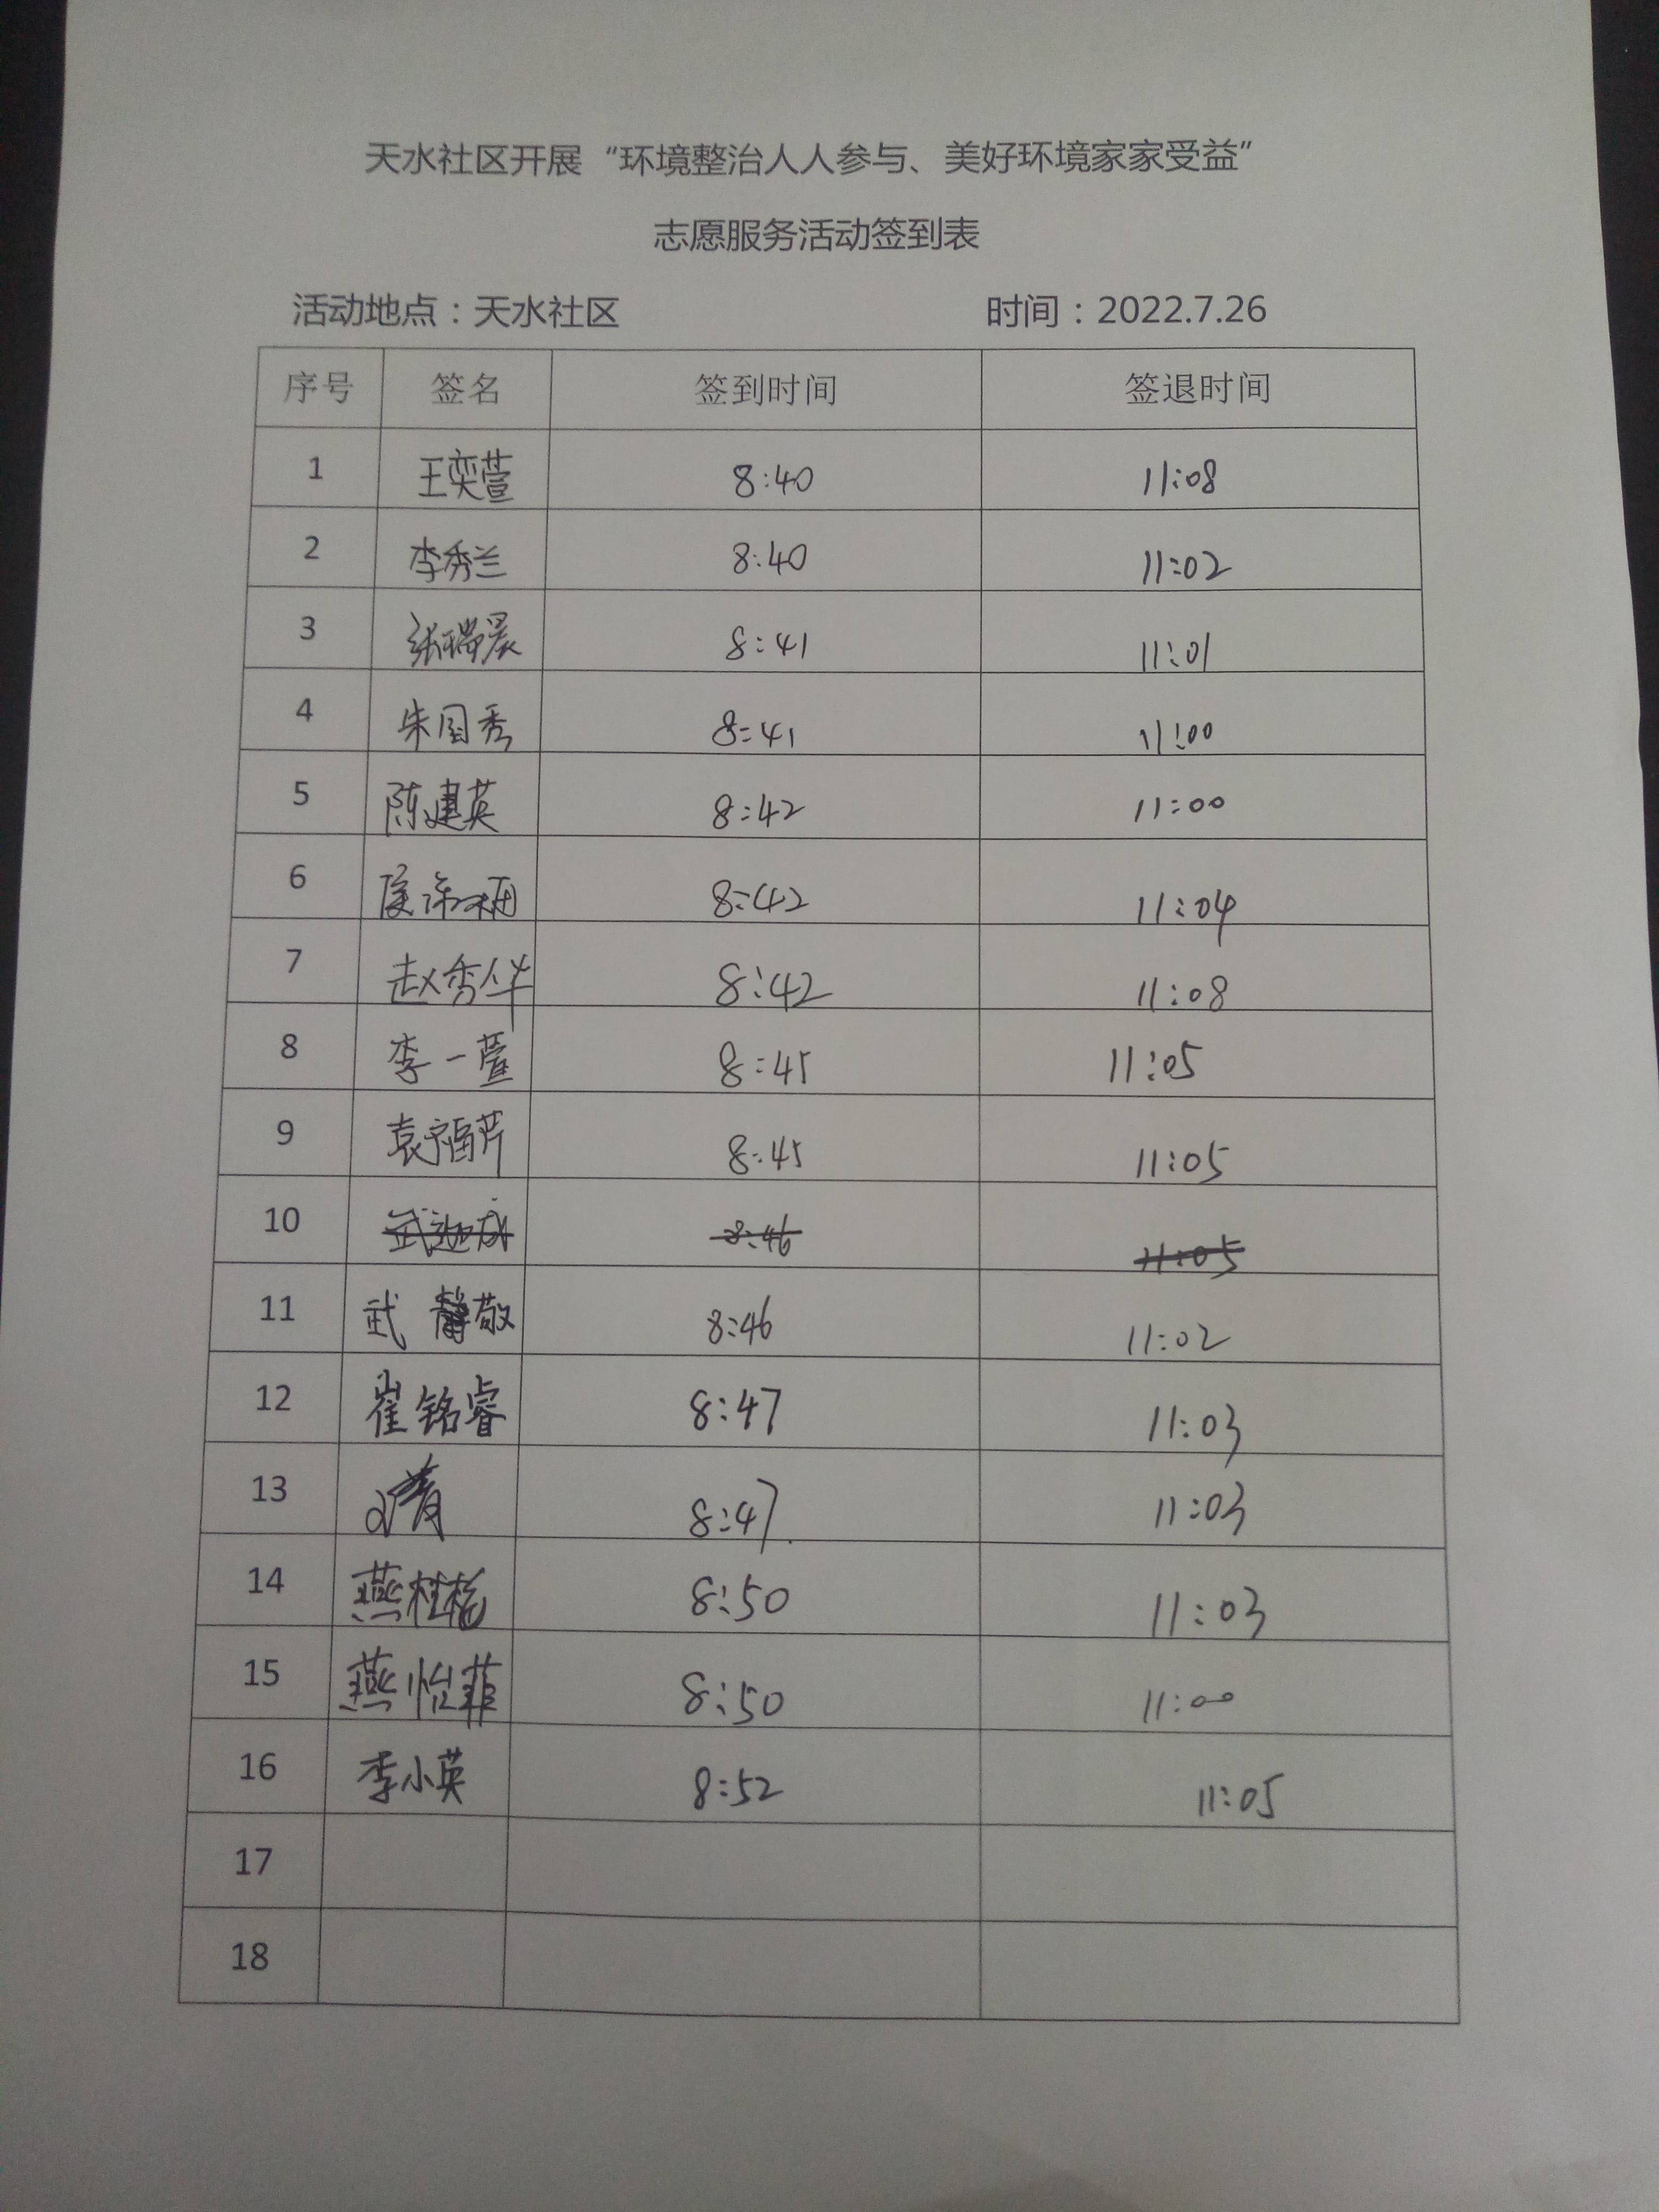 天水社区开展“环境整治人人参与、美好环境家家受益”
志愿服务活动签到表
活动地点：天水社区 时间：2022.7.26
序号 签名 签到时间 签退时间
1 王奕萱 8:40 11:08
2 李秀兰 8:40 11:02
3 张瑞晨 8:41 11:01
4 朱国秀 8:41 11:00
5 陈建英 8:42 11:00
6 8:42 11:04
7 赵秀华 8:42 11:08
8 李一萱 8:45 11:05
9 8:45 11:05
10 8:46 11:05
11 武静敬 8:46 11:02
12 崔铭睿 8:47 11:03
13 8:47 11:03
14 8:50 11:03
15 燕怡菲 8:50 11:00
16 李小英 8:52 11:05
17
18